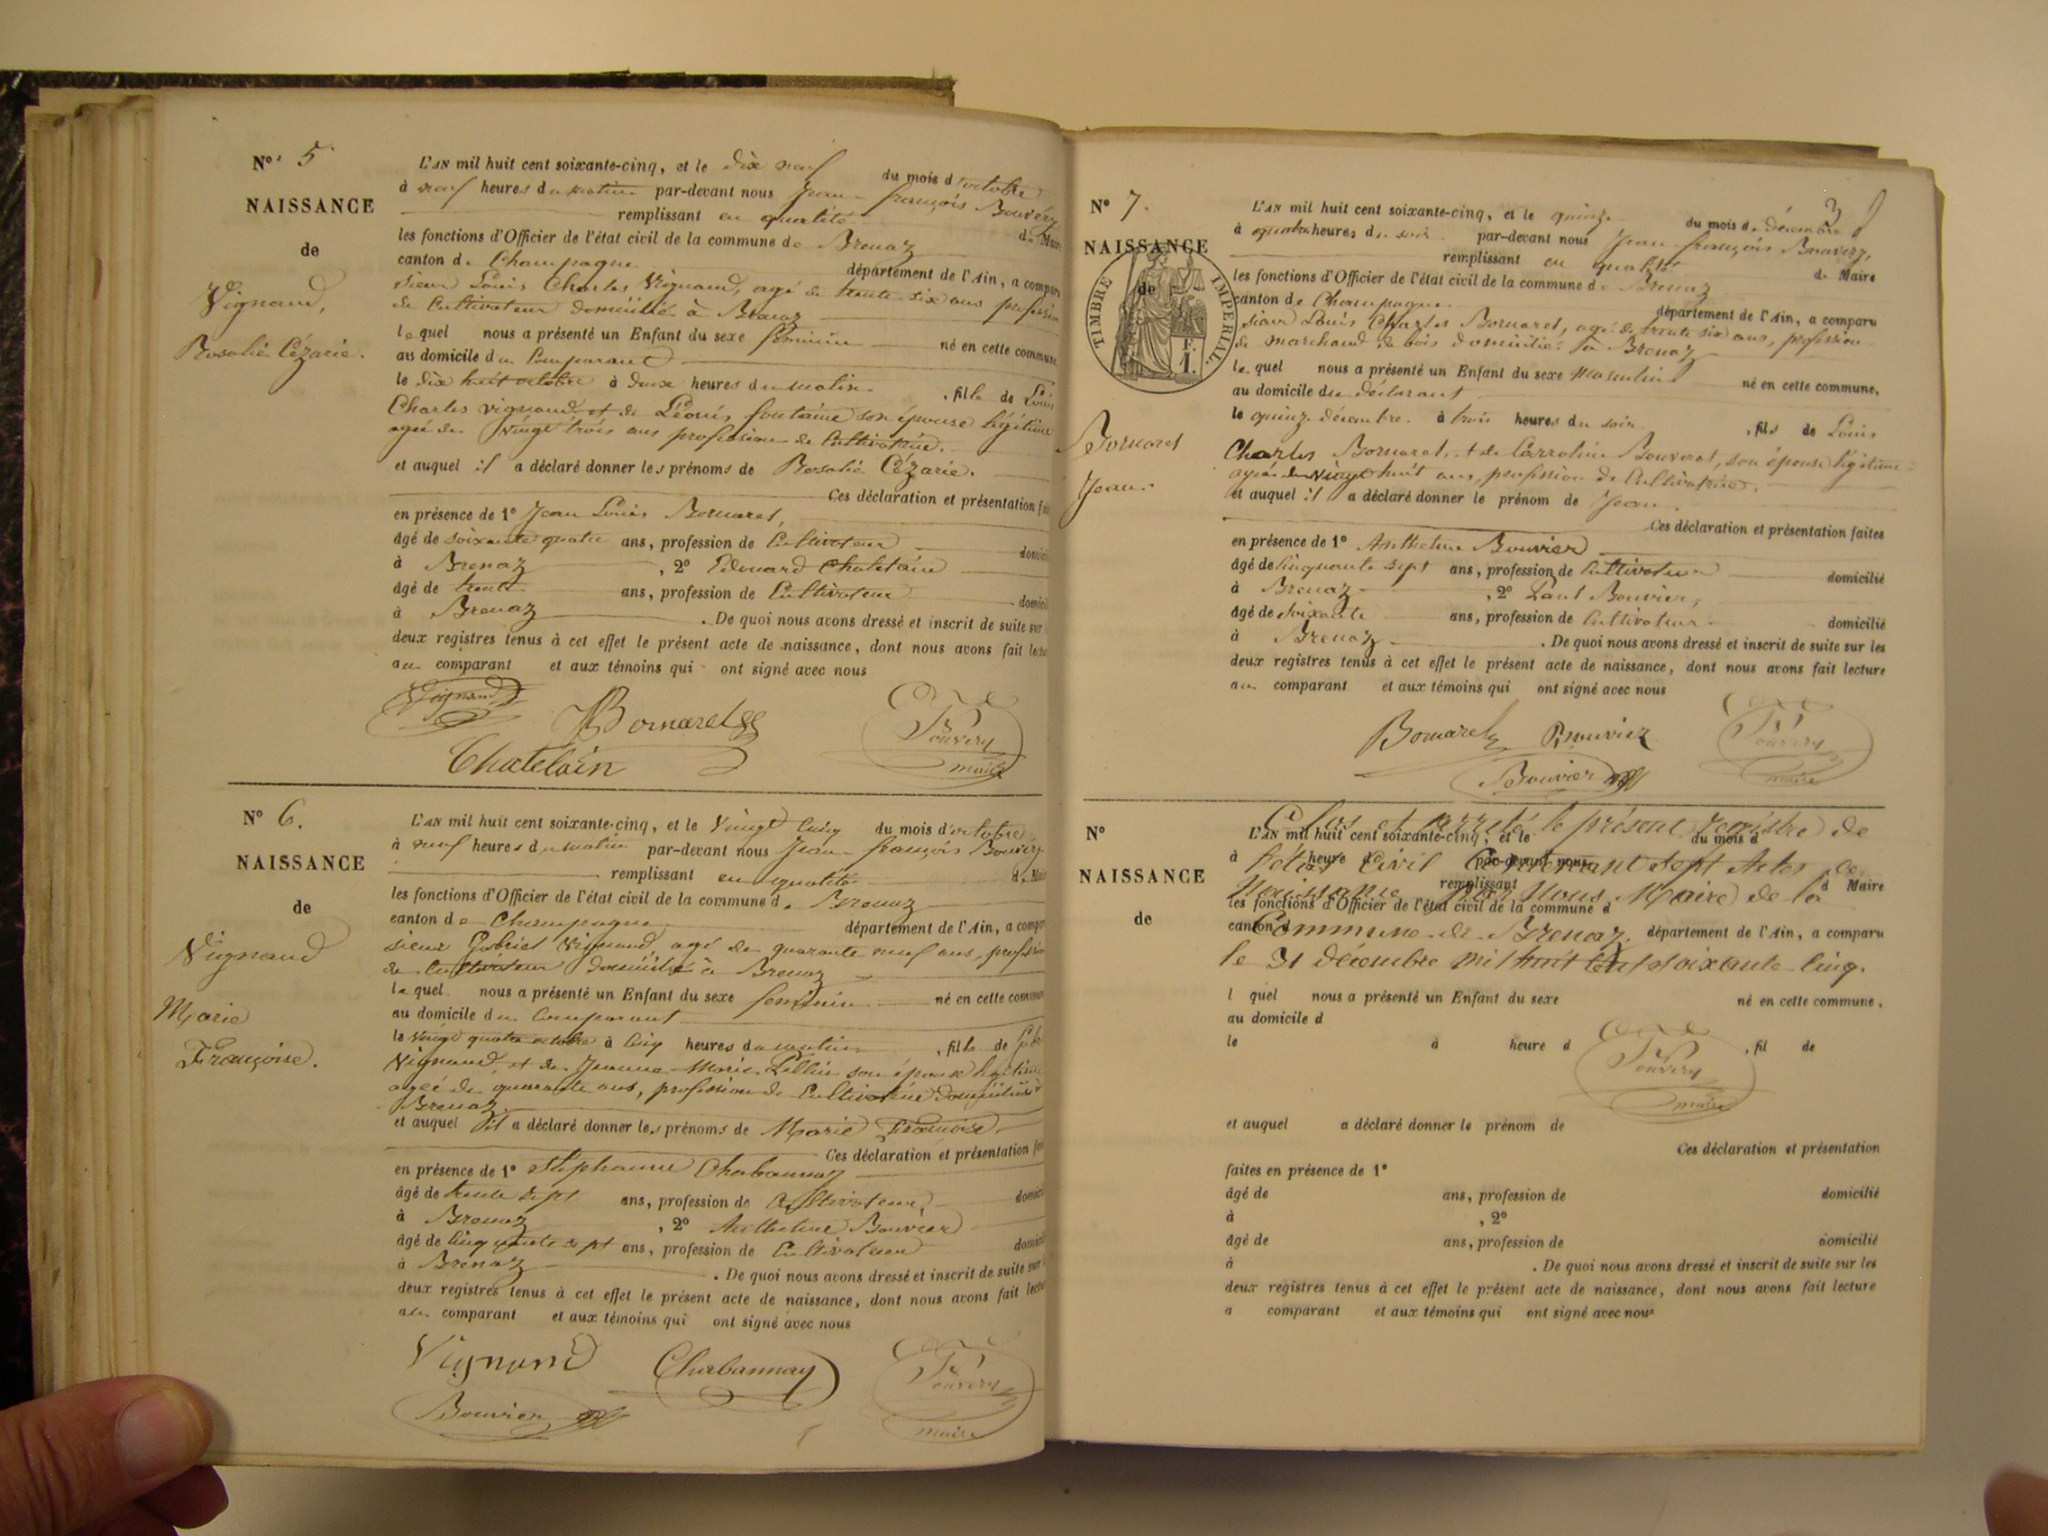 N° 5
NAISSANCE
de
Vignand,
Rosalie Cézarie.
L'AN mil huit cent soixante-cinq, et le dix neuf du mois d'octobre
à neuf heures du matin par-devant nous Jean-françois Bouvery
remplissant en qualité de Maire
les fonctions d'Officier de l'état civil de la commune de Brenaz
canton de Champagne département de l'Ain, a comparu
sieur Louis Charles Vignand, agé de trente six ans profession
de Cultivateur domicilié à Brenaz
lequel nous a présenté un Enfant du sexe féminin né en cette commune
au domicile du Comparant
le dix huit octobre à deux heures du matin, fille de Louis
Charles Vignand et de Léonis fontaine son épouse légitime
agée de Vingt trois ans profession de Cultivatrice.
et auquel il a déclaré donner les prénoms de Rosalie Cézarie.
Ces déclaration et présentation
en présence de 1° Jean Louis Bornaret,
âgé de soixante quatre ans, profession de Cultivateur
à Brenaz, 2° Edouard Chatelain
âgé de trente ans, profession de Cultivateur
à Brenaz. De quoi nous avons dressé et inscrit de suite sur
deux registres tenus à cet effet le présent acte de naissance, dont nous avons fait
au comparant et aux témoins qui ont signé avec nous
Vignand
Bornaret
Bouvery
Chatelain
maire
N° 6.
NAISSANCE
de
Vignand
Marie
Françoise.
L'AN mil huit cent soixante-cinq, et le Vingt Cinq du mois d'octobre
à neuf heures du matin par-devant nous Jean-françois Bouvery
remplissant en qualité de
les fonctions d'Officier de l'état civil de la commune de Brenaz
canton de Champagne département de l'Ain, a
sieur Gabriel Vignand, agé de quarante neuf ans,
de Cultivateur domicilié à Brenaz
lequel nous a présenté un Enfant du sexe féminin né en cette commune
au domicile du Comparant
le Vingt quatre octobre à Cinq heures du matin, fille de
Vignand, et de Jeanne-Marie Pellin son épouse légitime
agée de quarante ans, profession de Cultivatrice domiciliée à
Brenaz.
et auquel il a déclaré donner les prénoms de Marie Françoise.
Ces déclaration et présentation
en présence de 1° Charbannay
âgé de trente sept ans, profession de Cultivateur,
à Brenaz, 2° Anthelme Bouvier
âgé de Cinquante sept ans, profession de Cultivateur
à Brenaz. De quoi nous avons dressé et inscrit de suite sur
deux registres tenus à cet effet le présent acte de naissance, dont nous avons fait
au comparant et aux témoins qui ont signé avec nous
Vignand Charbannay Bouvery
Bouvier maire
3
N° 7.
NAISSANCE
de
TIMBRE IMPERIAL.
1.
Bornaret
Jean.
L'AN mil huit cent soixante-cinq, et le quinze du mois de décembre
à quatre heures du soir par-devant nous Jean-françois Bouvery,
remplissant en qualité de Maire
les fonctions d'Officier de l'état civil de la commune de Brenaz
canton de Champagne. département de l'Ain, a comparu
sieur Louis Charles Bornaret, agé de trente six ans, profession
de marchand de bois domicilié à Brenaz
lequel nous a présenté un Enfant du sexe Masculin né en cette commune,
au domicile du déclarant
le quinze décembre. à trois heures du soir, fils de Louis
Charles Bornaret, et de Carroline Bouverat, son épouse légitime
agée de Vingt huit ans, profession de Cultivatrice.
et auquel il a déclaré donner le prénom de Jean.
Ces déclaration et présentation faites
en présence de 1° Anthelme Bouvier
âgé de Cinquante sept ans, profession de Cultivateur domicilié
à Brenaz, 2° Paul Bouvier,
âgé de soixante ans, profession de Cultivateur domicilié
à Brenaz. De quoi nous avons dressé et inscrit de suite sur les
deux registres tenus à cet effet le présent acte de naissance, dont nous avons fait lecture
au comparant et aux témoins qui ont signé avec nous
Bornaret Bouvier Bouvery
Bouvier maire
N°
NAISSANCE
de
Clos et arrêté le présent registre de
L'AN mil huit cent soixante-cinq, et le du mois d
l'état Civil Contenant sept Actes de
à heure d par-devant nous
Naissance par Nous Maire de la
remplissant d Maire
les fonctions d'Officier de l'état civil de la commune d
Commune de Brenaz.
canton d département de l'Ain, a comparu
le 31 décembre mil huit Cent soixante-Cinq.
l quel nous a présenté un Enfant du sexe né en cette commune,
au domicile d
le à heure d , fil de
Bouvery
maire
et auquel a déclaré donner le prénom de
Ces déclaration et présentation
faites en présence de 1°
âgé de ans, profession de domicilié
à , 2°
âgé de ans, profession de domicilié
à . De quoi nous avons dressé et inscrit de suite sur les
deux registres tenus à cet effet le présent acte de naissance, dont nous avons fait lecture
a comparant et aux témoins qui ont signé avec nous